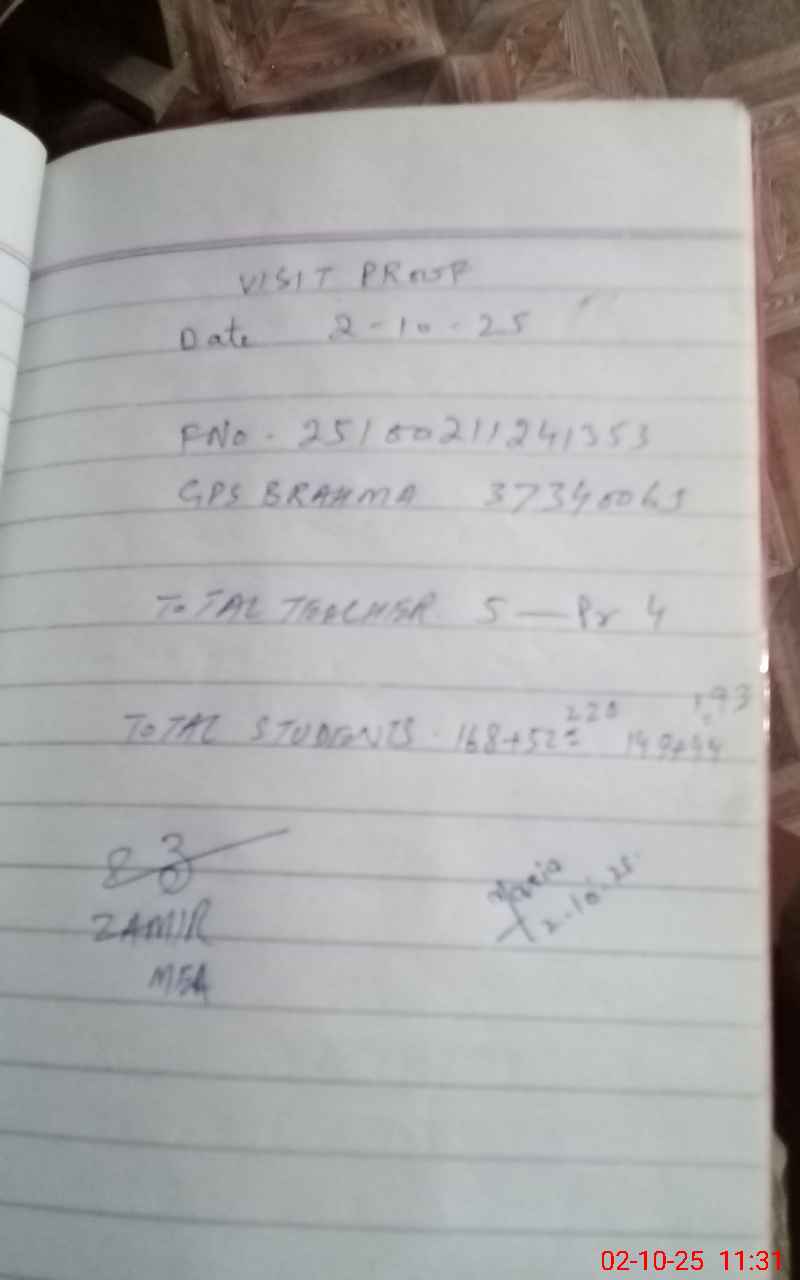 VISIT PROOF
Date 2-10-25
FNo. 251000211241353
GPS BRAHMA 37340065
TOTAL TEACHER. 5 — Pr 4
220 193
TOTAL STUDENTS. 168+52= 149+44
ZAMIR
MEA
2-10-25.
02-10-25 11:31